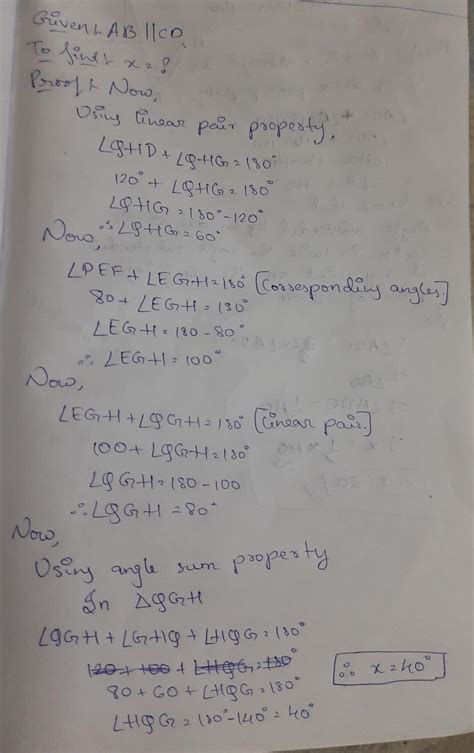 Given:- AB||CD.
To find:- x=?
Proof:- Now,
Using linear pair property,
∠QHD + ∠QHG = 180°
120° + ∠QHG = 180°
∠QHG = 180° - 120°
∴ ∠QHG = 60°
Now,
∠PEF + ∠EGH = 180° [Corresponding angles.]
80 + ∠EGH = 180°
∠EGH = 180 - 80°
∴ ∠EGH = 100°
Now,
∠EGH + ∠QGH = 180° [Linear pair.]
100 + ∠QGH = 180°
∠QGH = 180 - 100
∴ ∠QGH = 80°
Now,
Using angle sum property
In ΔQGH
∠QGH + ∠GHQ + ∠HQG = 180°
120 + 100 + ∠HQG = 180°
80 + 60 + ∠HQG = 180°
∠HQG = 180° - 140° = 40°
∴ x = 40°